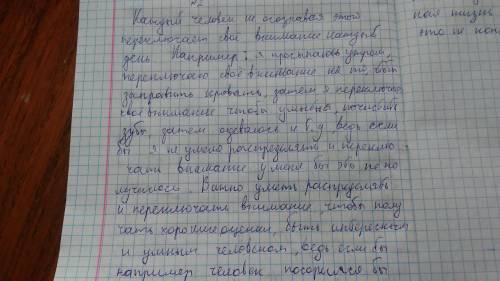 №2
Каждый человек не осозравая этого
переключает свое внимание каждый
день. Например: я просыпаюсь утром,
переключаю своё внимание на то, чтоб
заправить кровать, затем я переключаю
свое внимание чтобы умыться, почистить
зубы затем одеваюсь и т.д, ведь если
бы я не умела распределять и переклю-
чать внимание у меня бы это не по
лучилось. Важно уметь распределять
и переключать внимание, чтобы полу
чать хорошие оценки, быть интересным
и умным человеком, ведь если бы
например человек поссорился бы
ная жизнь
это не